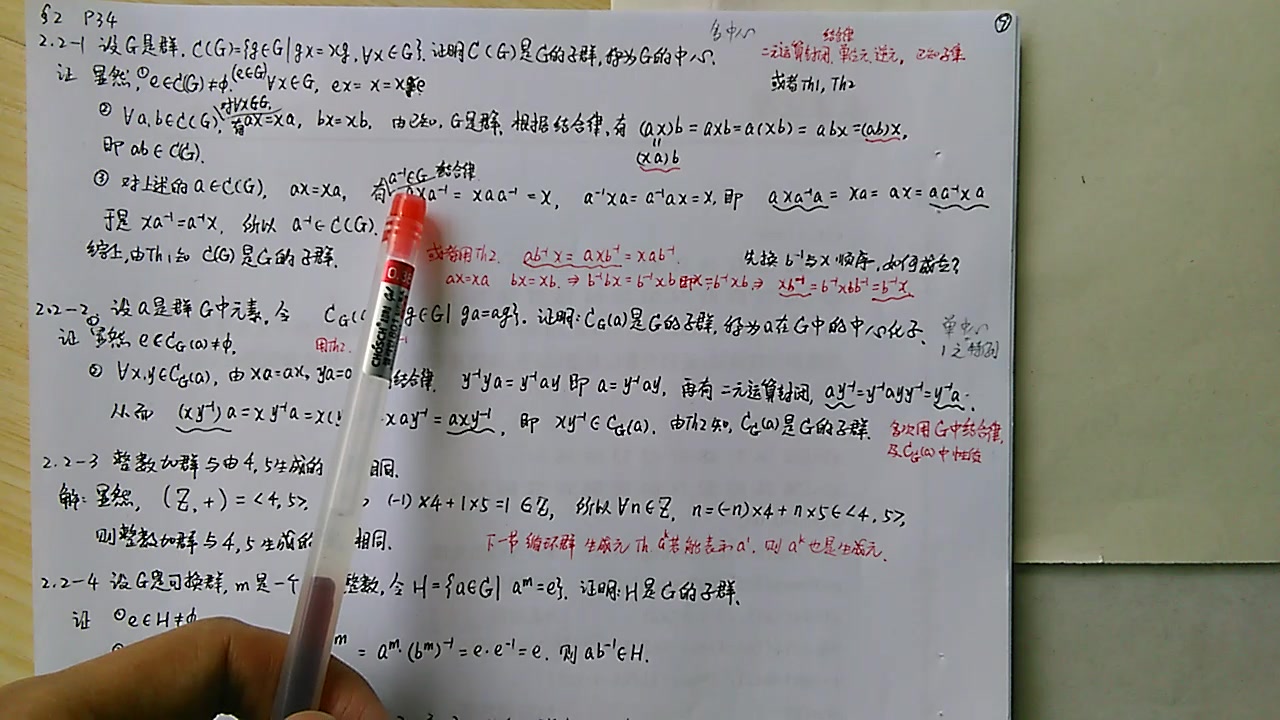 §2 P34
⑦
2.2-1 设G是群, C(G)={g∈G|gx=xg, ∀x∈G}. 证明C(G)是G的子群, 称为G的中心.
多中心
结合律
二元运算封闭, 单位元, 逆元, 已知子集
或者Th1, Th2
证 显然, ①e∈C(G)≠φ. (e∈G) ∀x∈G, ex=x=xe
② ∀a,b∈C(G), 对∀x∈G, 有ax=xa, bx=xb, 由已知, G是群, 根据结合律, 有 (ax)b=axb=a(xb)=abx=(ab)x,
(xa)b
即 ab∈C(G).
③ 对上述的a∈C(G), ax=xa, 有 a⁻¹∈G 结合律 axa⁻¹=xaa⁻¹=x, a⁻¹xa=a⁻¹ax=x, 即 axa⁻¹a=xa=ax=aa⁻¹xa
于是 xa⁻¹=a⁻¹x, 所以 a⁻¹∈C(G).
综上, 由Th1知 C(G)是G的子群.
或者用Th2. ab⁻¹x=axb⁻¹=xab⁻¹. 先换b⁻¹与x顺序, 如何成立?
ax=xa bx=xb. ⇒ b⁻¹bx=b⁻¹xb 即x=b⁻¹xb ⇒ xb⁻¹=b⁻¹xbb⁻¹=b⁻¹x
2.2-2 设a是群G中元素, 令 C_G( g∈G| ga=ag}. 证明: C_G(a)是G的子群, 称为a在G中的中心化子.
单中心
1之特例
证 ① 显然 e∈C_G(a)≠φ. 用Th2.
② ∀x,y∈C_G(a), 由xa=ax, ya=a 结合律. y⁻¹ya=y⁻¹ay 即 a=y⁻¹ay, 再有二元运算封闭, ay⁻¹=y⁻¹ayy⁻¹=y⁻¹a.
从而 (xy⁻¹)a=xy⁻¹a=x( xay⁻¹=axy⁻¹, 即 xy⁻¹∈C_G(a). 由Th2知, C_G(a)是G的子群.
多次用G中结合律,
及C_G(a)中性质
2.2-3 整数加群与由4,5生成的 相同.
解: 显然, (Z,+)=<4,5> (-1)×4+1×5=1∈Z, 所以∀n∈Z, n=(-n)×4+n×5∈<4,5>,
则整数加群与4,5生成的 相同.
下一节循环群 生成元 Th. aᵏ若能表示a¹, 则aᵏ也是生成元.
2.2-4 设G是可换群, m是一个 整数, 令H={a∈G| aᵐ=e}. 证明: H是G的子群.
证 ①e∈H≠φ
m =aᵐ·(bᵐ)⁻¹=e·e⁻¹=e. 则ab⁻¹∈H.